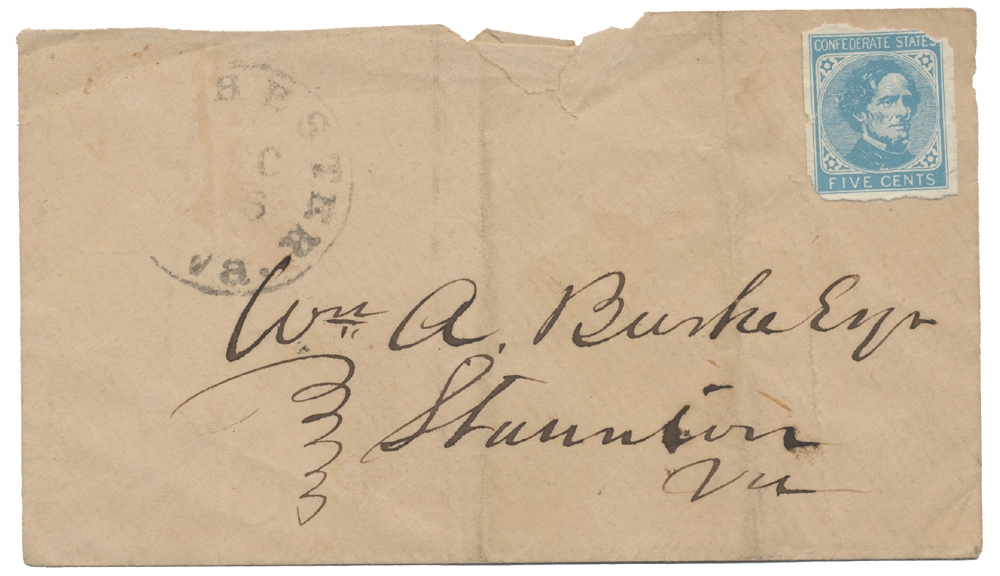 CONFEDERATE STATES
FIVE CENTS
Va.
Wm A. Burke Esqr
Staunton
Va